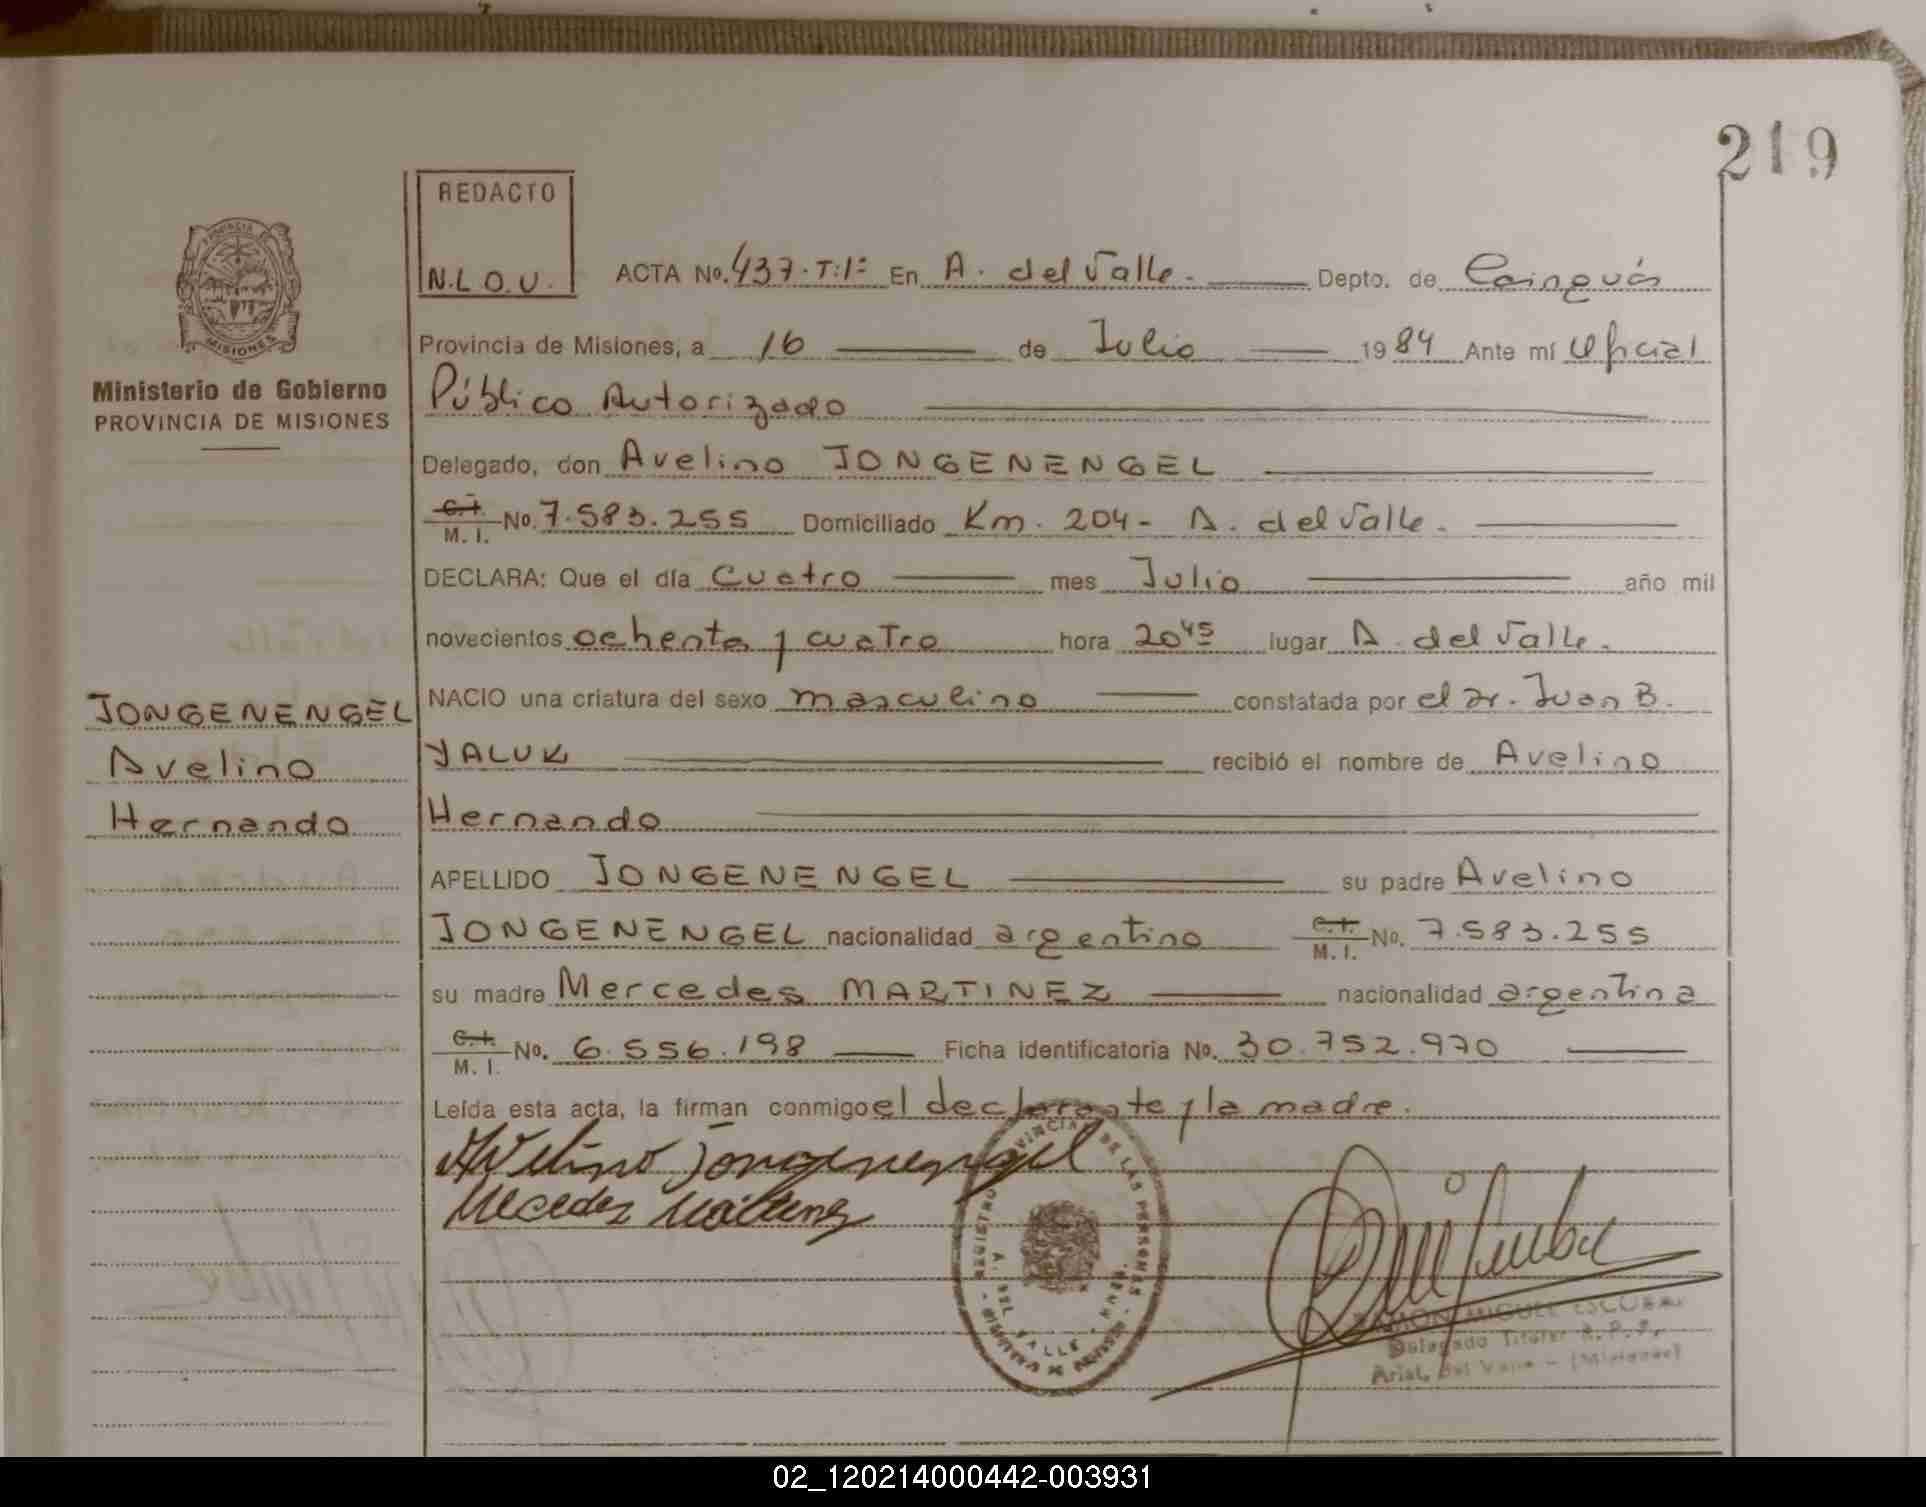 219
REDACTO
N.L.O.U.
PROVINCIA DE
MISIONES
Ministerio de Gobierno
PROVINCIA DE MISIONES
ACTA No. 437.T:1º En A. del Valle. Depto. de Cainguás
Provincia de Misiones, a 16 de Julio 1984 Ante mí Oficial
Público Autorizado
Delegado, don Avelino JONGENENGEL
C.I. M. I. No. 7.583.255 Domiciliado Km. 204- A. del Valle.
DECLARA: Que el día Cuatro mes Julio año mil
novecientos ochenta y cuatro hora 20⁴⁵ lugar A. del Valle.
NACIO una criatura del sexo masculino constatada por el Dr. Juan B.
YALUK recibió el nombre de Avelino
Hernando
APELLIDO JONGENENGEL su padre Avelino
JONGENENGEL nacionalidad argentino C.I. M. I. No. 7.583.255
su madre Mercedes MARTINEZ nacionalidad argentina
C.I. M. I. No. 6.556.198 Ficha identificatoria No. 30.752.970
Leída esta acta, la firman conmigo el declarante y la madre.
JONGENENGEL
Avelino
Hernando
Avelino Jongenengel
Mecedez Martinez
REGISTRO PROVINCIAL DE LAS PERSONAS
A. DEL VALLE
RAMON MIGUEL ESCOBAR
Delegado Titular R.P.P.
Arist. del Valle - (Misiones)
02_120214000442-003931